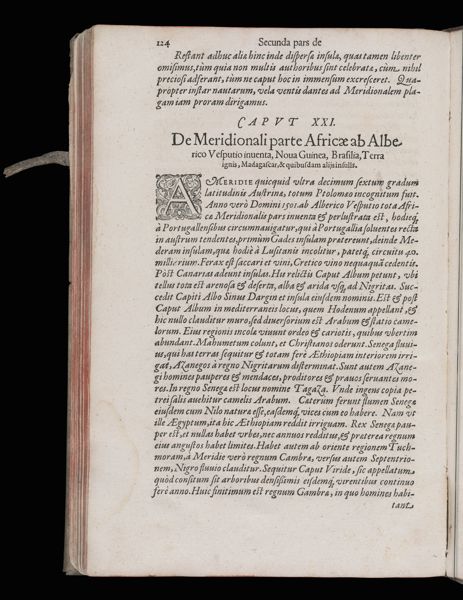 124 Secunda pars de
Restant adhuc aliæ hinc inde dispersæ insulæ, quas tamen libenter
omisimus, tùm quia non multis authoribus sint celebratæ, cùm nihil
preciosi adferant, tùm ne caput hoc in immensum excresceret. Qua-
propter instar nautarum, vela ventis dantes ad Meridionalem pla-
gam iam proram dirigamus.
CAPVT XXI.
De Meridionali parte Africæ ab Albe-
rico Vesputio inuenta, Noua Guinea, Brasilia, Terra
ignis, Madagascar, & quibusdam alijs insulis.
A MERIDIE quicquid vltra decimum sextum gradum
latitudinis Austrina, totum Ptolomæo incognitum fuit.
Anno verò Domini 1501. ab Alberico Vesputio tota Afri-
ca Meridionalis pars inuenta & perlustrata est, hodieq́;
à Portugallensibus circumnauigatur, qui à Portugallia soluentes rectà
in austrum tendentes, primùm Gades insulam prætereunt, deinde Me-
deram insulam, quæ hodiè à Lusitanis incolitur, patetq́; circuitu 40.
milliarium. Ferax est saccari et vini, Cretico vino nequaquã cedentis.
Pòst Canarias adeunt insulas. His relictis Caput Album petunt, vbi
tellus tota est arenosa & deserta, alba & arida vsq; ad Nigritas. Suc-
cedit Capiti Albo Sinus Dargin et insula eiusdem nominis. Est & pòst
Caput Album in mediterraneis locus, quem Hodenum appellant, &
hic nullo clauditur muro, sed diuersorium est Arabum & statio came-
lorum. Eius regionis incolæ viuunt ordeo & cariotis, quibus vbertim
abundant. Mahumetum colunt, et Christianos oderunt. Senega fluui-
us, qui has terras sequitur & totam ferè Æthiopiam interiorem irri-
gat, Azanegos à regno Nigritarum disterminat. Sunt autem Azane-
gi homines pauperes & mendaces, proditores & prauos seruantes mo-
res. In regno Senega est locus nomine Tagaza. Vnde ingens copia pe-
trei salis auehitur camelis Arabum. Cæterum ferunt flumen Senega
eiusdem cum Nilo naturæ esse, easdemq́; vices cum eo habere. Nam vt
ille Ægyptum, ita hic Æthiopiam reddit irriguam. Rex Senega pau-
per est, et nullas habet vrbes, nec annuos redditus, & præterea regnum
eius angustos habet limites. Habet autem ab oriente regionem Tuch-
moram, à Meridie verò regnum Cambra, versus autem Septentrio-
nem, Nigro fluuio clauditur. Sequitur Caput Viride, sic appellatum,
quòd consitum sit arboribus densissimis eisdemq́; virentibus continuo
ferè anno. Huic finitimum est regnum Gambra, in quo homines habi-
tant